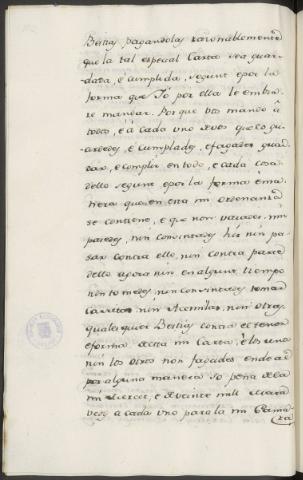 Bestias pagandolas razonablemente
que la tal especial Carta sea guar-
dada, e cumplida, segunt e por la
forma que Yo por ella le embia-
re mandar. Porque vos mando à
todos, e à cada uno de vos que lo gu-
ardedes, e cumplades, e fagades guar-
dar, e complir en todo, e cada cosa
dello segunt e por la forma e ma-
nera que en esta mi ordenanza
se contiene, e que non vayades, nin
pasedes, nin consintades hir nin pa-
sar contra ello, nin contra parte
dello agora nin en algunt tiempo
non tomedes, nin consintades tomar
Carretas nin Acemilas, nin otras
qualesquier Bestias contra el tenor
e forma desta mi Carta, e los unos
nin los otros non fagades ende al
por alguna manera so pena de la
mi Merced, e de veinte mill marave-
dis a cada uno para la mi Cama-
ra